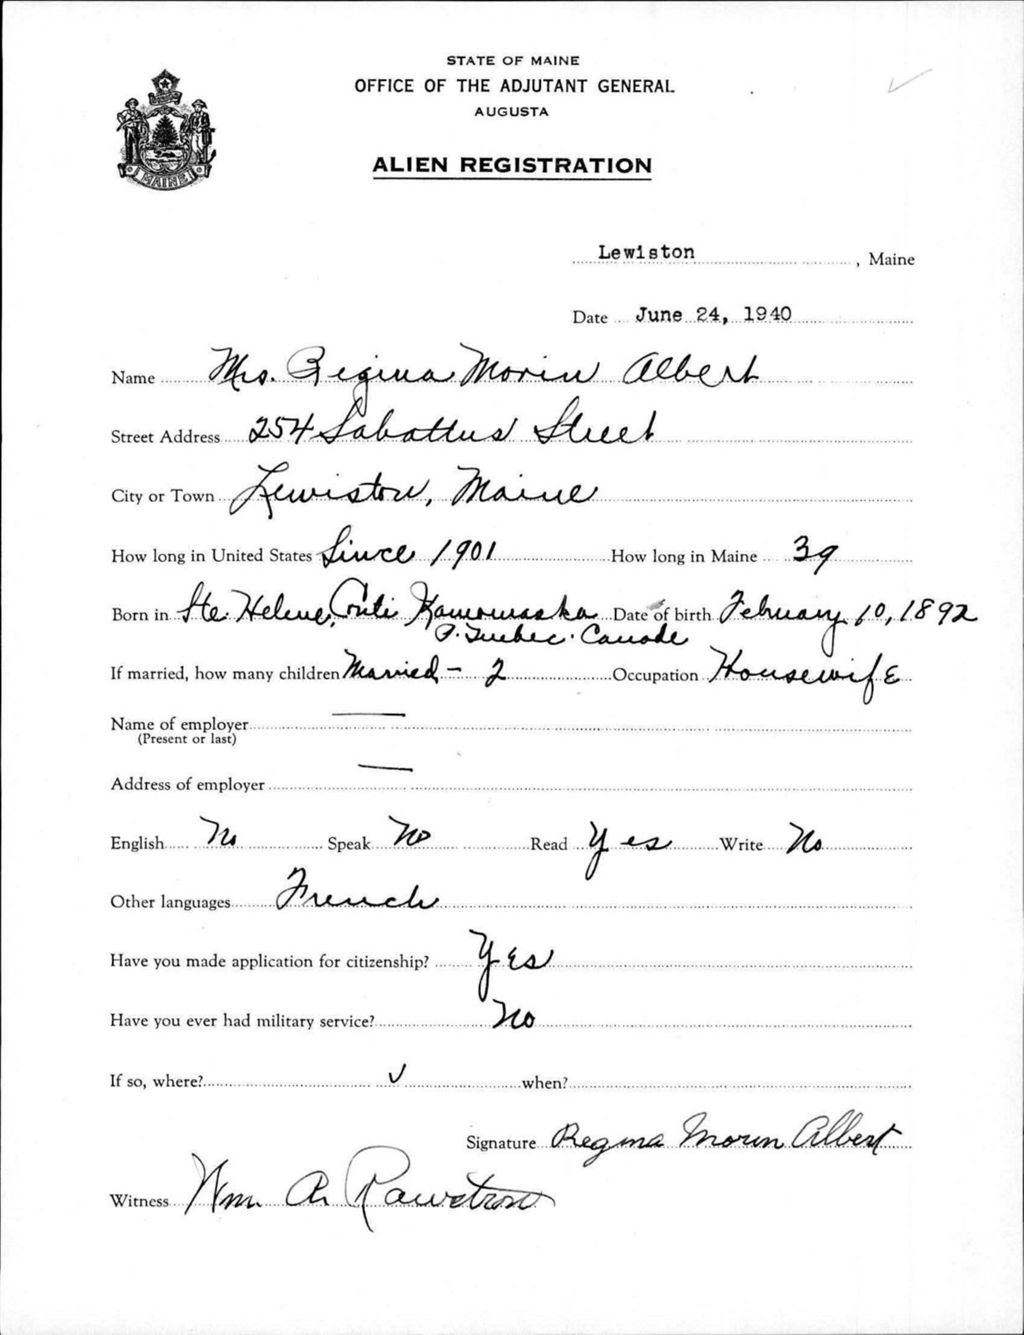 STATE OF MAINE
OFFICE OF THE ADJUTANT GENERAL
AUGUSTA
ALIEN REGISTRATION
MAINE
Lewiston, Maine
Date June 24, 1940
Name Mrs. Regina Morin Albert
Street Address 254 Sabattus Street
City or Town Lewiston, Maine
How long in United States Since 1901 How long in Maine 39
Born in Ste. Helene, Conti Kamouraska Date of birth February 10, 1892
P. Quebec. Canade
If married, how many children Married - 2 Occupation Housewife
Name of employer
(Present or last)
Address of employer
English No Speak No Read Yes Write No
Other languages French
Have you made application for citizenship? Yes
Have you ever had military service? No
If so, where? when?
Signature Regina Morin Albert
Witness Wm. A. Rawstron